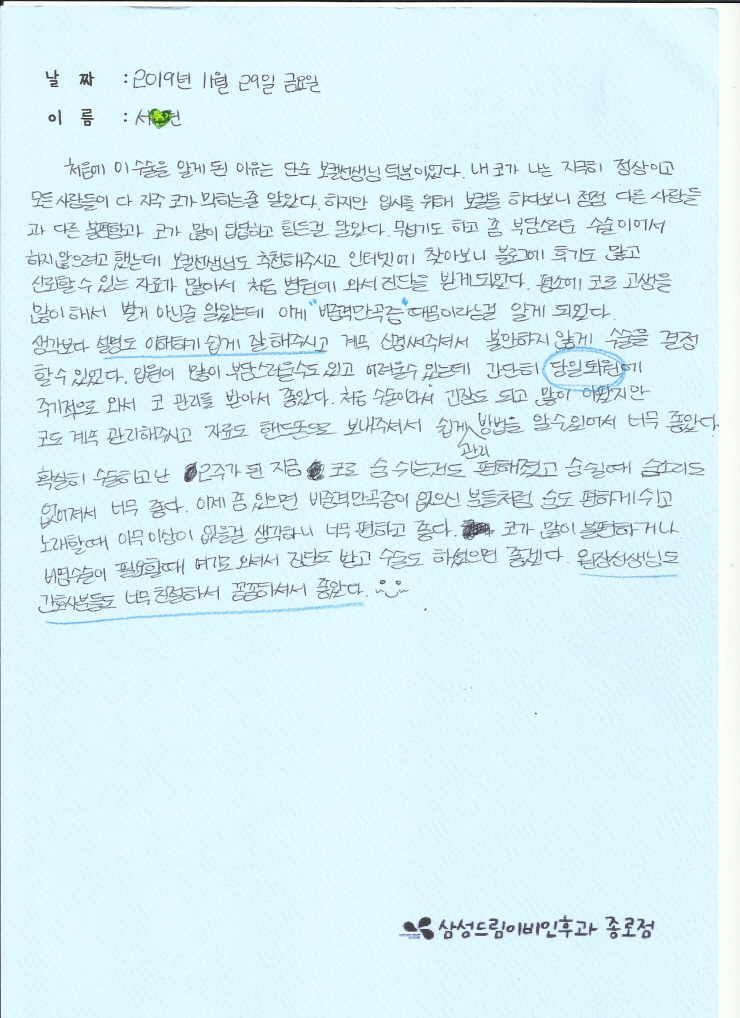 날 짜 : 2019년 11월 29일 금요일
이 름 : 서 전
처음에 이 수술을 알게 된 이유는 단순 보컬선생님 덕분이었다. 내 코가 나는 지극히 정상이고
모든 사람들이 다 자주 코가 막히는줄 알았다. 하지만 입시를 위해 보컬을 하다보니 점점 다른 사람들
과 다른 불편함과 코가 많이 답답하고 힘든걸 알았다. 무섭기도 하고 좀 부담스러운 수술이어서
하지 않으려고 했는데 보컬선생님도 추천해주시고 인터넷에 찾아보니 블로그에 후기도 많고
신뢰할 수 있는 자료가 많아서 처음 병원에 와서 진단을 받게되었다. 평소에 코로 고생을
많이 해서 별게 아닌줄 알았는데 이게 "비중격만곡증" 때문이라는걸 알게 되었다.
생각보다 설명도 이해하기 쉽게 잘 해주시고 계속 신경써주셔서 불안하지 않게 수술을 결정
할 수 있었다. 입원이 많이 부담스러울수도 있고 어려울수 있는데 간단히 당일퇴원에
주기적으로 와서 코 관리를 받아서 좋았다. 처음 수술이라서 긴장도 되고 많이 아팠지만
코도 계속 관리해주시고 자료도 핸드폰으로 보내주셔서 쉽게 관리 방법을 알 수 있어서 너무 좋았다
확실히 수술하고난 2주가 된 지금 코로 숨 쉬는것도 편해졌고 숨쉴때 숨소리도
없어져서 너무 좋다. 이제 좀 있으면 비중격만곡증이 없으신 분들처럼 숨도 편하게 쉬고
노래할때 아무 이상이 없을걸 생각하니 너무 편하고 좋다. 코가 많이 불편하거나
비염수술이 필요할때 여기로 와서 진단도 받고 수술도 하셨으면 좋겠다. 원장선생님도
간호사분들도 너무 친절하셔서 좋았다.
삼성드림이비인후과 종로점